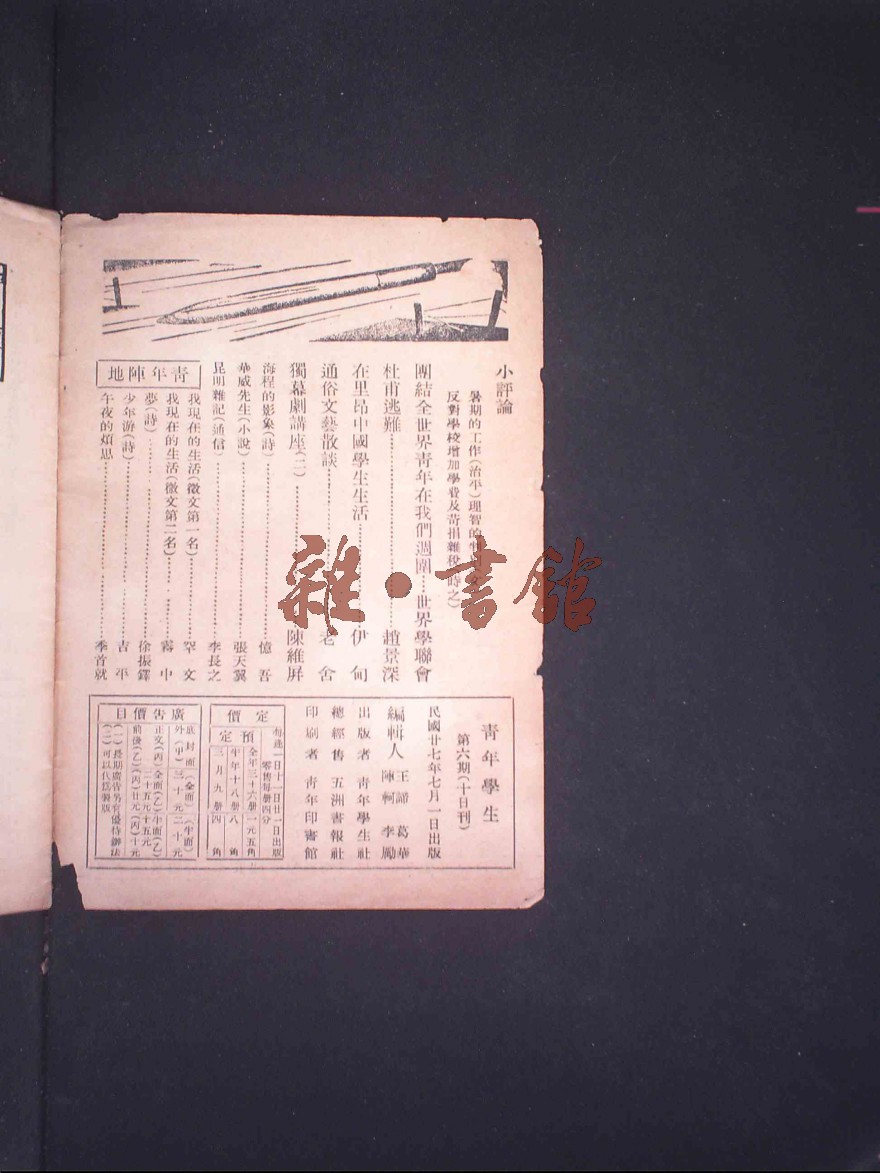 小評論
暑期的工作(治平)理智的
反對學校增加學費及苛捐雜稅(時之)
團結全世界青年在我們週圍……世界學聯會
杜甫逃難……趙景深
在里昂中國學生生活……伊甸
通俗文藝散談……老舍
獨幕劇講座(二)……陳維屏
海程的影象(詩)……憶吾
華威先生(小說)……張天翼
昆明雜記(通信)……李長之
青年陣地
我現在的生活(徵文第一名)……罕文
我現在的生活(徵文第二名)……霧中
夢(詩)……徐振鐸
少年游(詩)……吉平
午夜的煩思……季首就
青年學生
第六期(十日刊)
民國廿七年七月一日出版
編輯人 王諦 葛華
陳柯 李勵
出版者 青年學生社
總經售 五洲書報社
印刷者 青年印書館
定價
每逢一日十一日廿一日出版
零售每册四分
預定
全年三十六册一元五角
半年十八册八角
三月九册四角
廣告價目
底封面(全面)(半面)
外(甲)三十元二十元
正文(丙)全面(乙)半面(乙)
二十五元十五元
前併(乙)(丙)廿元(丙)十元
(一)長期廣告另有優待辦法
(二)可以代爲製版
雜·書館